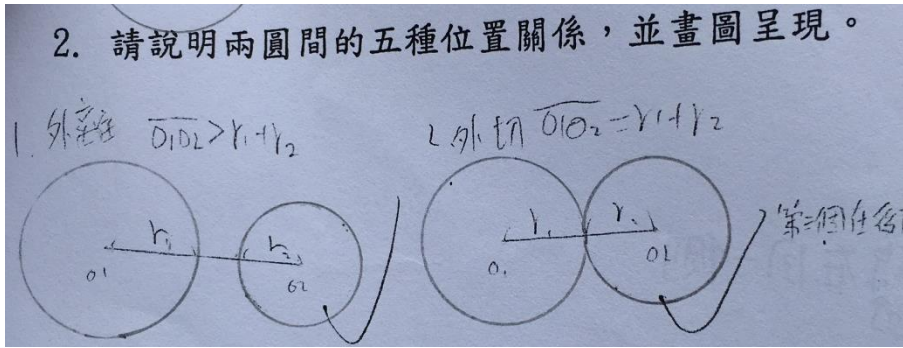 2. 請說明兩圓間的五種位置關係，並畫圖呈現。
1. 外離 O1O2>r1+r2
2 外切 O1O2=r1+r2
r1
r2
O1
O2
r1
r2
O1
O2
第三個在